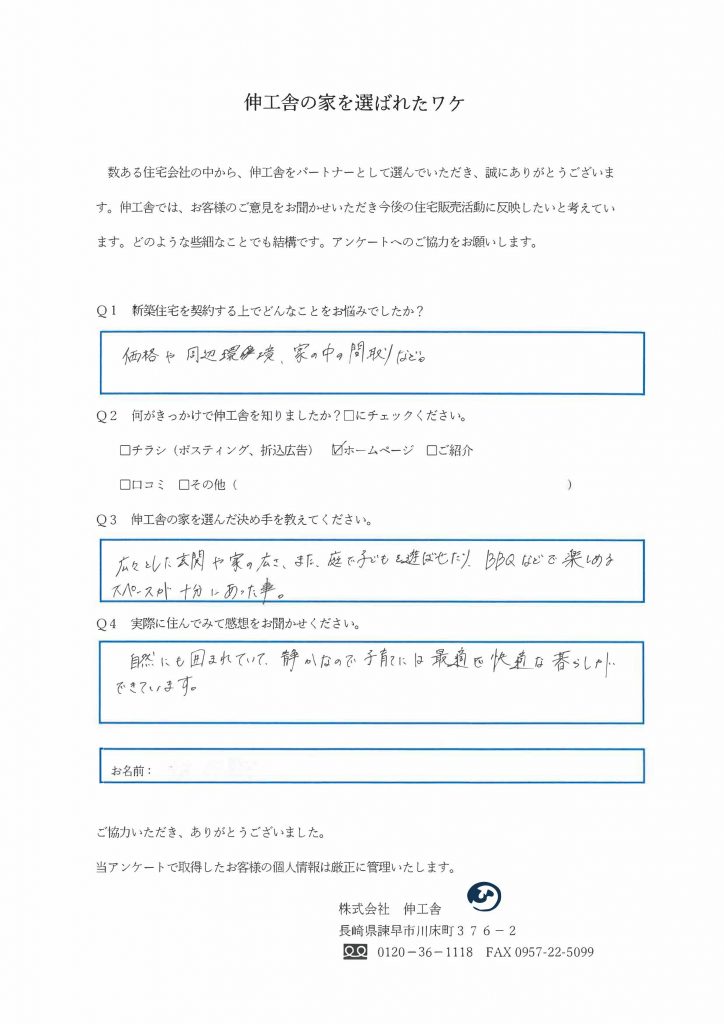 伸工舎の家を選ばれたワケ
数ある住宅会社の中から、伸工舎をパートナーとして選んでいただき、誠にありがとうございま
す。伸工舎では、お客様のご意見をお聞かせいただき今後の住宅販売活動に反映したいと考えてい
ます。どのような些細なことでも結構です。アンケートへのご協力をお願いします。
Q1　新築住宅を契約する上でどんなことをお悩みでしたか？
価格や周辺環境、家の中の間取りなど。
Q2　何がきっかけで伸工舎を知りましたか？□にチェックください。
□チラシ（ポスティング、折込広告）　☑ホームページ　□ご紹介
□口コミ　□その他（　　　　　　　　　　　　　　　　　　　　）
Q3　伸工舎の家を選んだ決め手を教えてください。
広々とした玄関や家の広さ、また、庭で子どもを遊ばせたり、BBQなどで楽しめる
スペースが十分にあった事。
Q4　実際に住んでみて感想をお聞かせください。
自然にも囲まれていて、静かなので子育てには最適で快適な暮らしが
できています。
お名前：
ご協力いただき、ありがとうございました。
当アンケートで取得したお客様の個人情報は厳正に管理いたします。
株式会社　伸工舎
長崎県諫早市川床町３７６－２
0120－36－1118　FAX 0957-22-5099